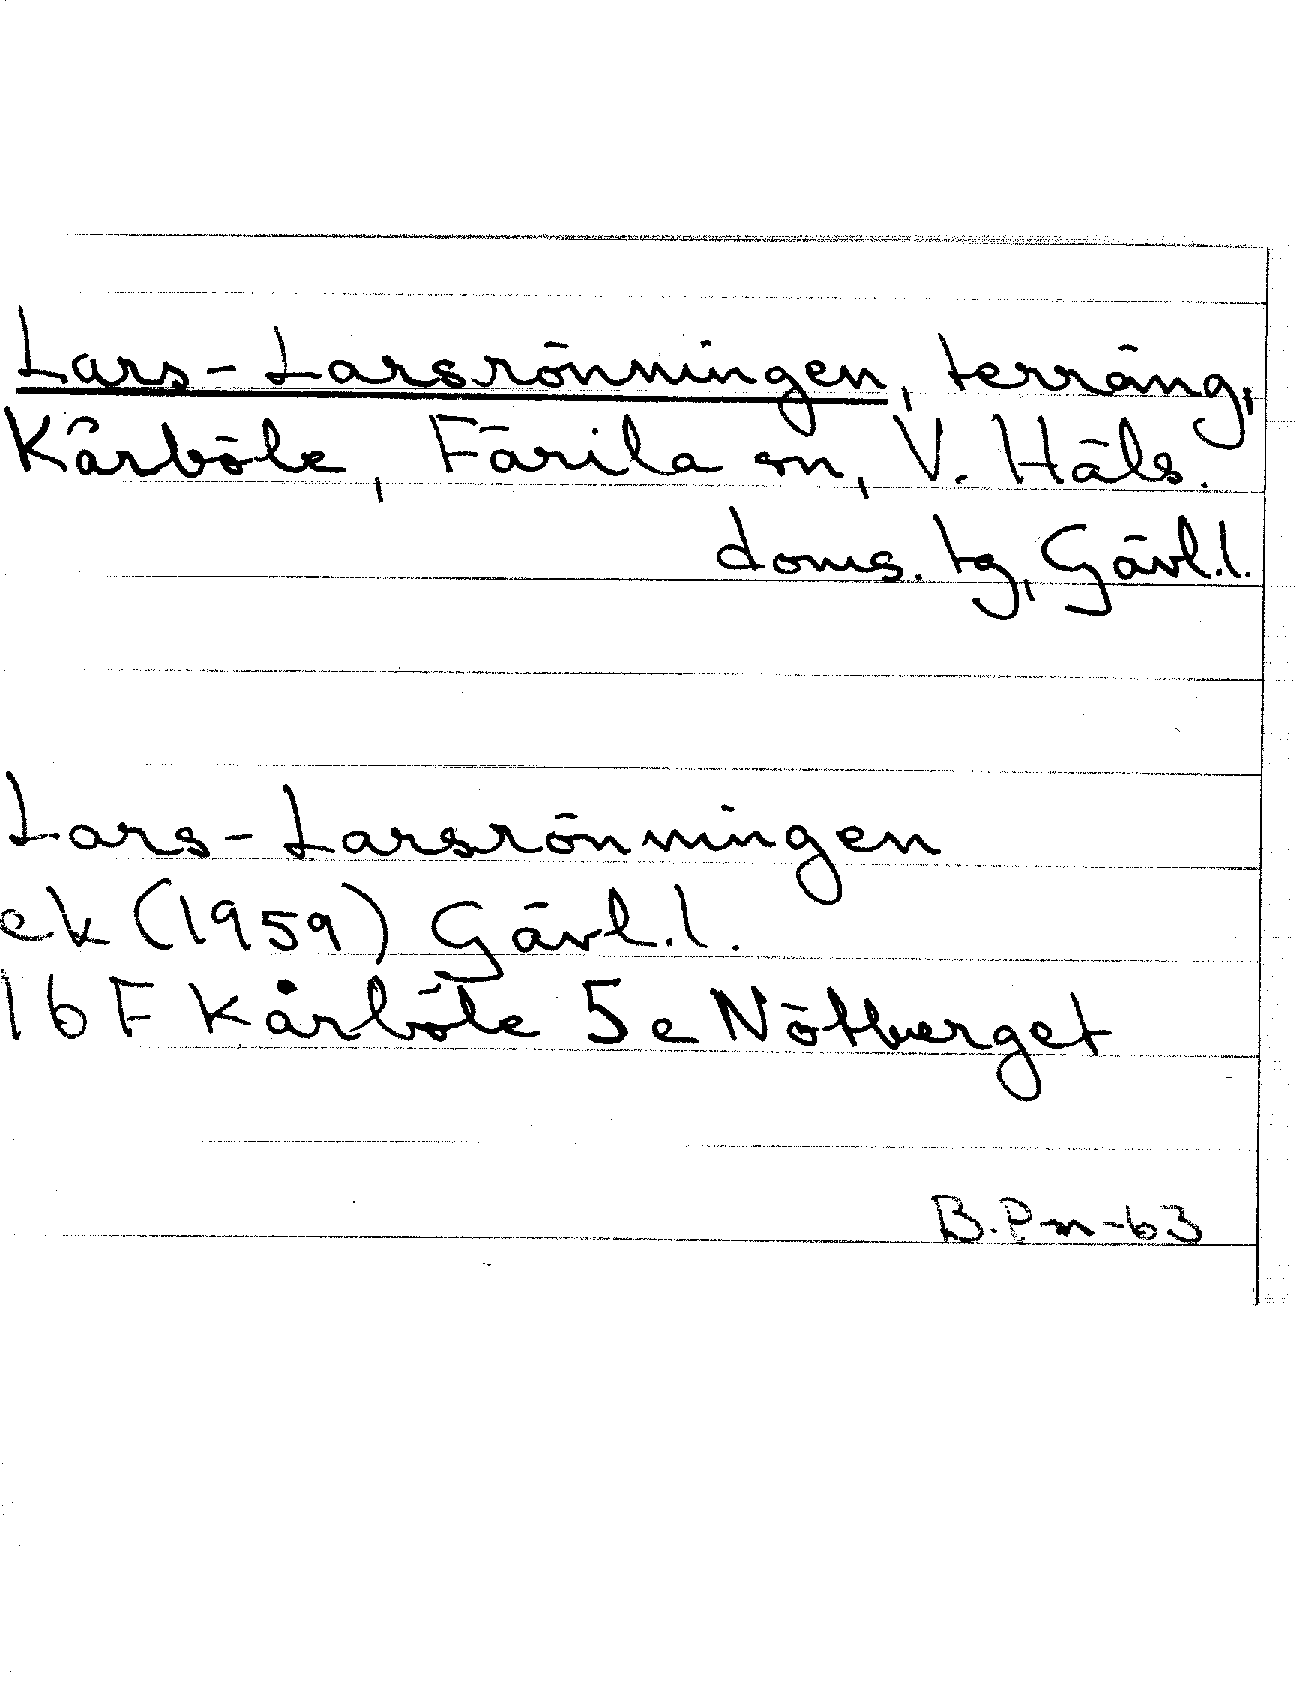 Lars-Larsrönningen, terräng,
Kårböle, Färila sn, V. Häls.
doms. tg, Gävl.l.
Lars-Larsrönningen
ek (1959) Gävl.l.
16 F Kårböle 5 e Nötberget
B.Pm-63